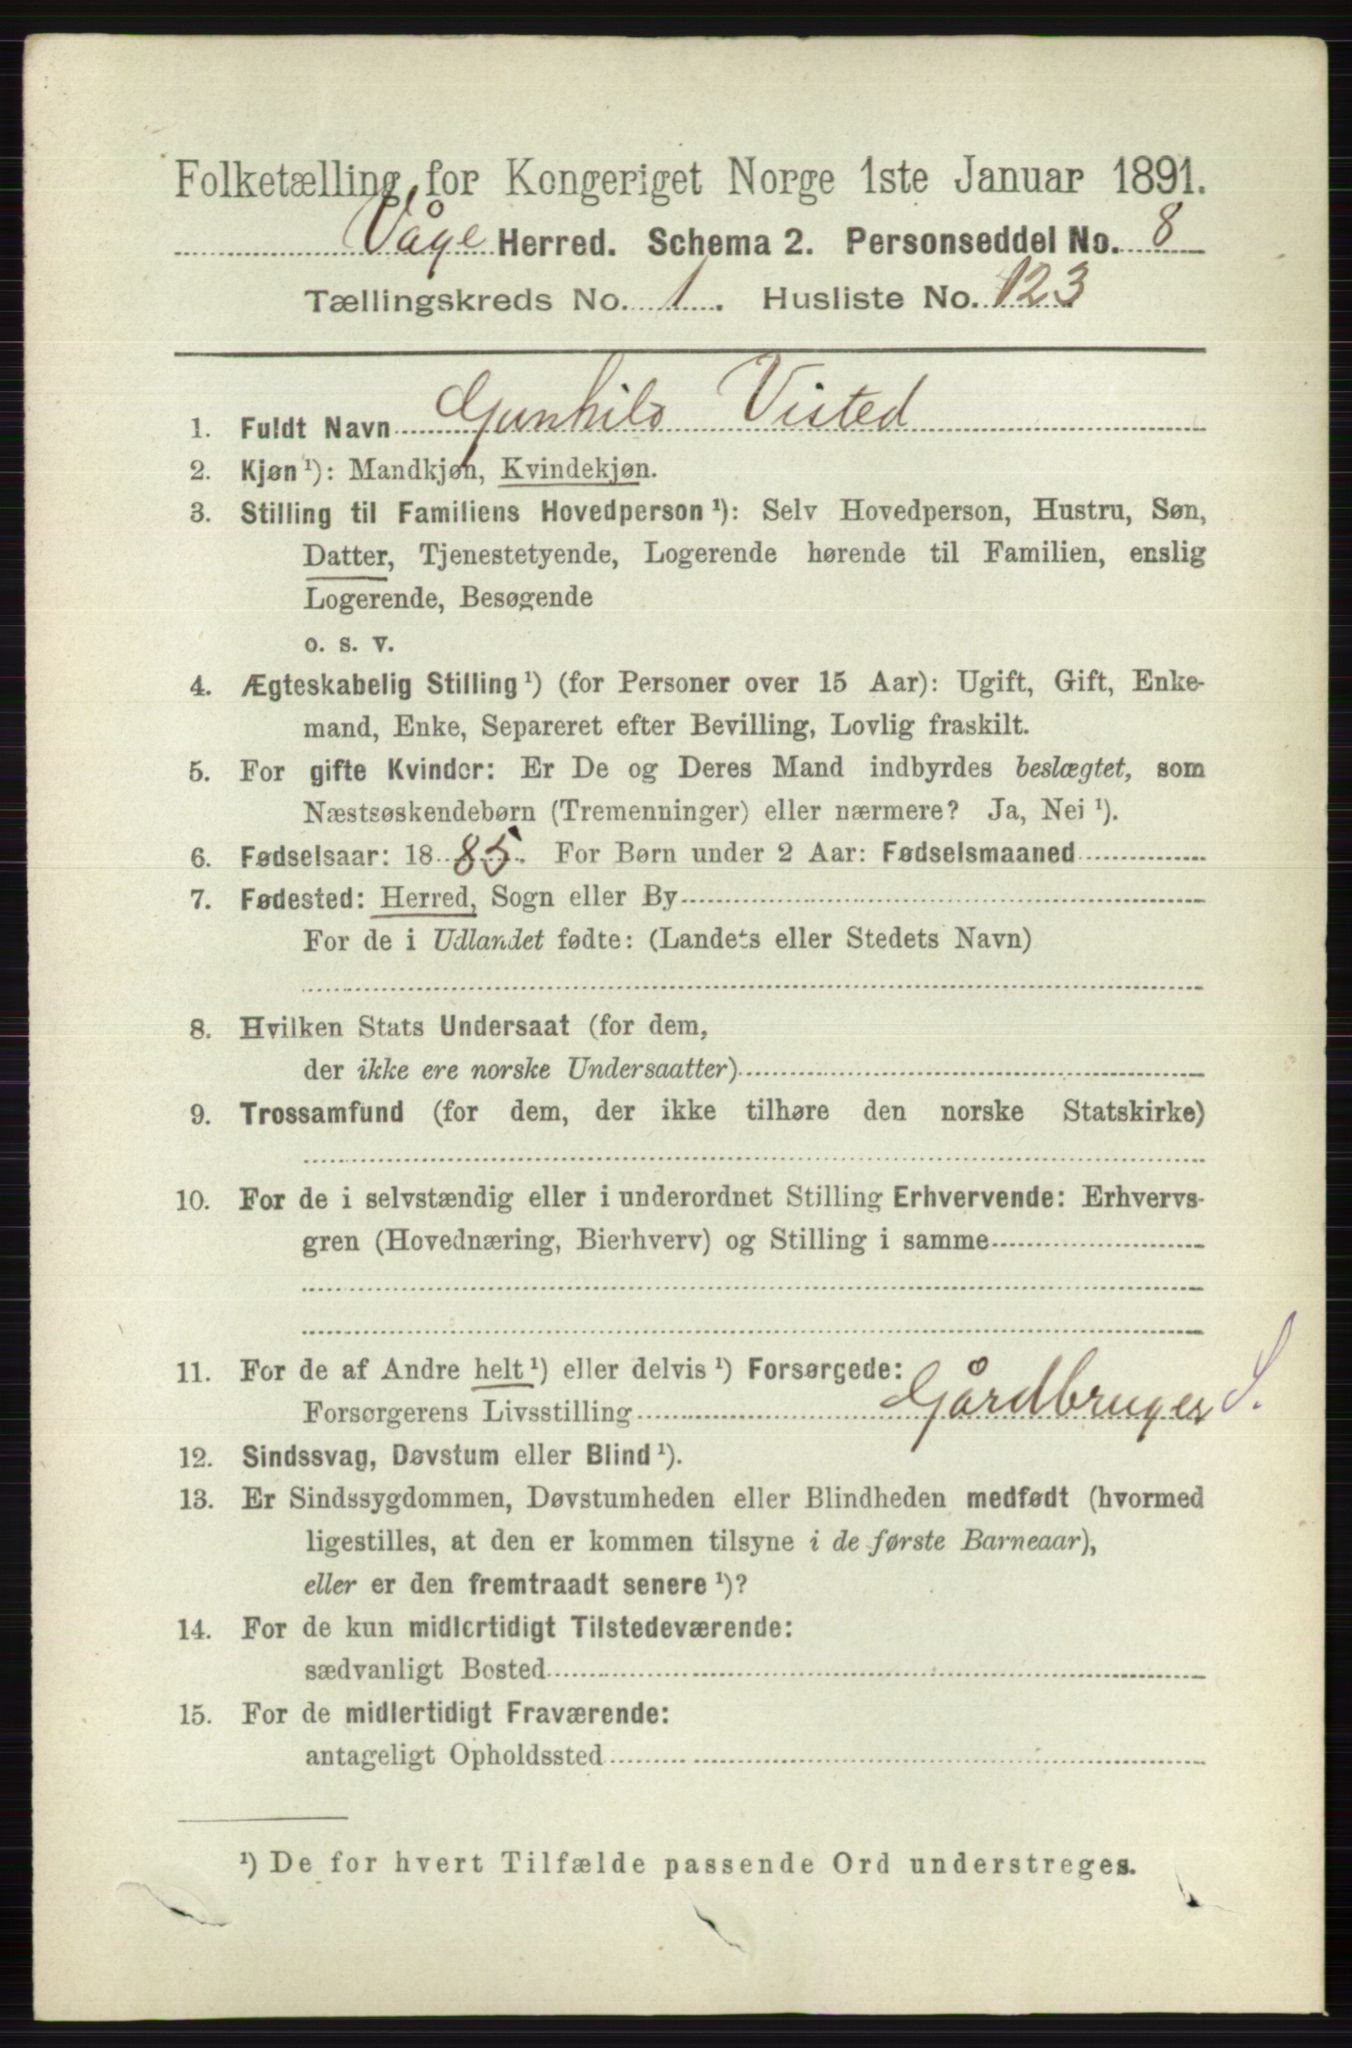 Folketælling for Kongeriget Norge 1ste Januar 1891.
Våge Herred. Schema 2. Personseddel No. 8
Tællingskreds No. 1. Husliste No. 123
1. Fuldt Navn Gunhild Visted
2. Kjøn ¹): Mandkjøn, Kvindekjøn.
3. Stilling til Familiens Hovedperson ¹): Selv Hovedperson, Hustru, Søn,
Datter, Tjenestetyende, Logerende hørende til Familien, enslig
Logerende, Besøgende
o. s. v.
4. Ægteskabelig Stilling ¹) (for Personer over 15 Aar): Ugift, Gift, Enke-
mand, Enke, Separeret efter Bevilling, Lovlig fraskilt.
5. For gifte Kvinder: Er De og Deres Mand indbyrdes beslægtet, som
Næstsøskendebørn (Tremenninger) eller nærmere? Ja, Nei ¹).
6. Fødselsaar: 1885. For Børn under 2 Aar: Fødselsmaaned
7. Fødested: Herred, Sogn eller By
For de i Udlandet fødte: (Landets eller Stedets Navn)
8. Hvilken Stats Undersaat (for dem,
der ikke ere norske Undersaatter)
9. Trossamfund (for dem, der ikke tilhøre den norske Statskirke)
10. For de i selvstændig eller i underordnet Stilling Erhvervende: Erhvervs-
gren (Hovednæring, Bierhverv) og Stilling i samme
11. For de af Andre helt ¹) eller delvis ¹) Forsørgede:
Forsørgerens Livsstilling Gårdbruger S.
12. Sindssvag, Døvstum eller Blind ¹).
13. Er Sindssygdommen, Døvstumheden eller Blindheden medfødt (hvormed
ligestilles, at den er kommen tilsyne i de første Barneaar),
eller er den fremtraadt senere ¹)?
14. For de kun midlertidigt Tilstedeværende:
sædvanligt Bosted
15. For de midlertidigt Fraværende:
antageligt Opholdssted
¹) De for hvert Tilfælde passende Ord understreges.